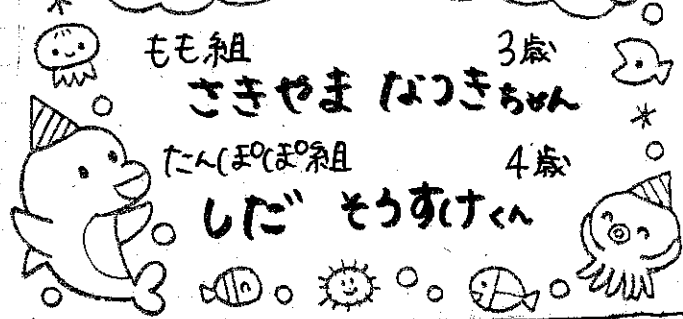 もも組 3歳
さきやま なつきちゃん
たんぽぽ組 4歳
しだ そうすけくん